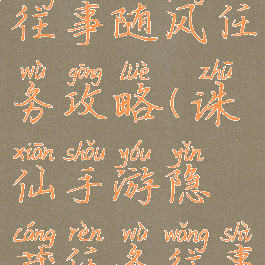 往事随风任
wù gōng lüè zhū
务攻略(诛
xiān shǒu yóu yǐn
仙手游隐
cáng rèn wù wǎng shì
藏任务往事